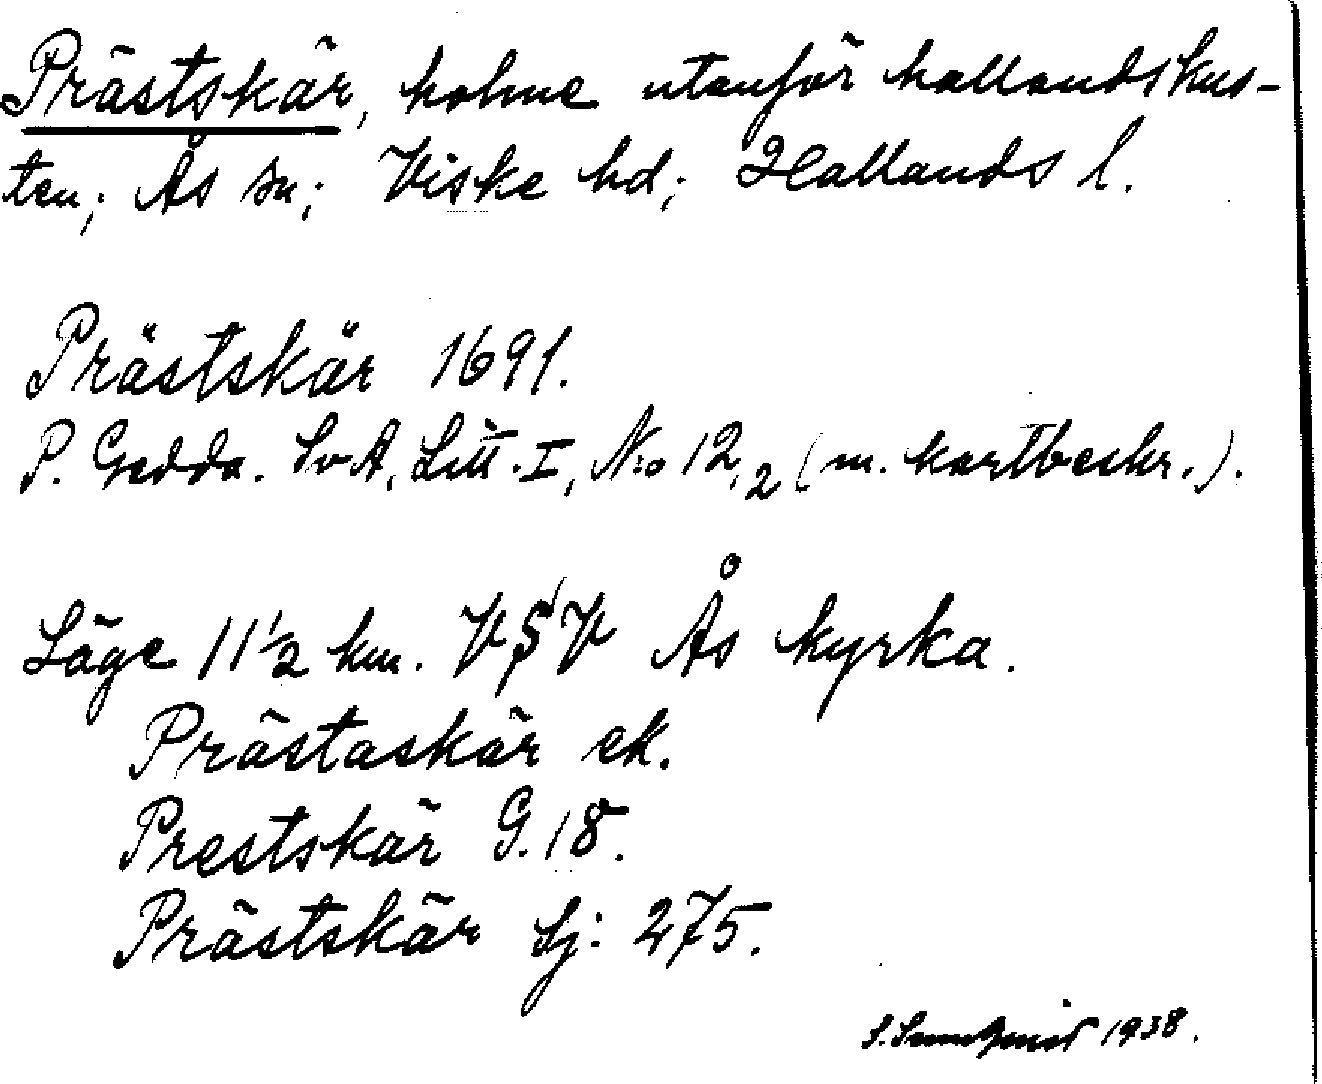 Prästskär, holme utanför hallandskus-
ten; Ås sn; Viske hd; Hallands l.
Prästskär 1691.
P. Gedda. SvA, Litt. I, No 12,2 (m. kartbeskr.).
Läge 11 1/2 km. VSV Ås kyrka.
Prästaskär ek.
Prestskär G. 18.
Prästskär Sj: 275.
S. 1938.